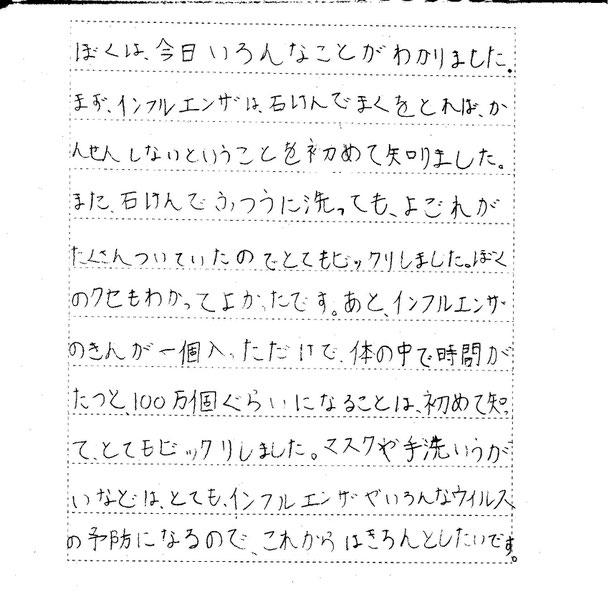 ぼくは、今日いろんなことがわかりました。
まず、インフルエンザは、石けんでまくをとれば、か
んせんしないということを初めて知りました。
また、石けんでふつうに洗っても、よごれが
たくさんついていたのでとてもビックリしました。ぼく
のクセもわかってよかったです。あと、インフルエンザ
のきんが一個入っただけで、体の中で時間が
たつと、100万個ぐらいになることは、初めて知っ
て、とてもビックリしました。マスクや手洗いうが
いなどは、とても、インフルエンザやいろんなウイルス
の予防になるので、これからはきちんとしたいです。